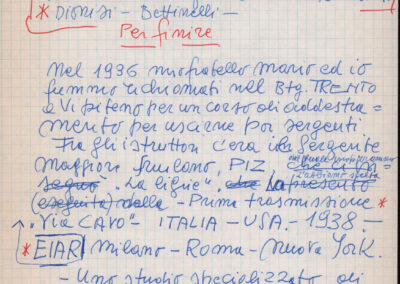 * DIONISI – Bettinelli –
Per finire
Nel 1936 mio fratello Mario ed io
fummo richiamati nel Btg. TRENTO
a Vipiteno per un corso di addestra=
mento per uscirne poi sergenti
Fra gli istruttori c'era un sergente
maggiore friulano, PIZ, che ci in=
segnò "La ligrie", la presentò
eseguita nella – Prima trasmissione *
"Via CAVO" – ITALIA – USA. – 1938. –
* EIAR Milano – Roma – Nuova York.
– Uno studio specializzato di